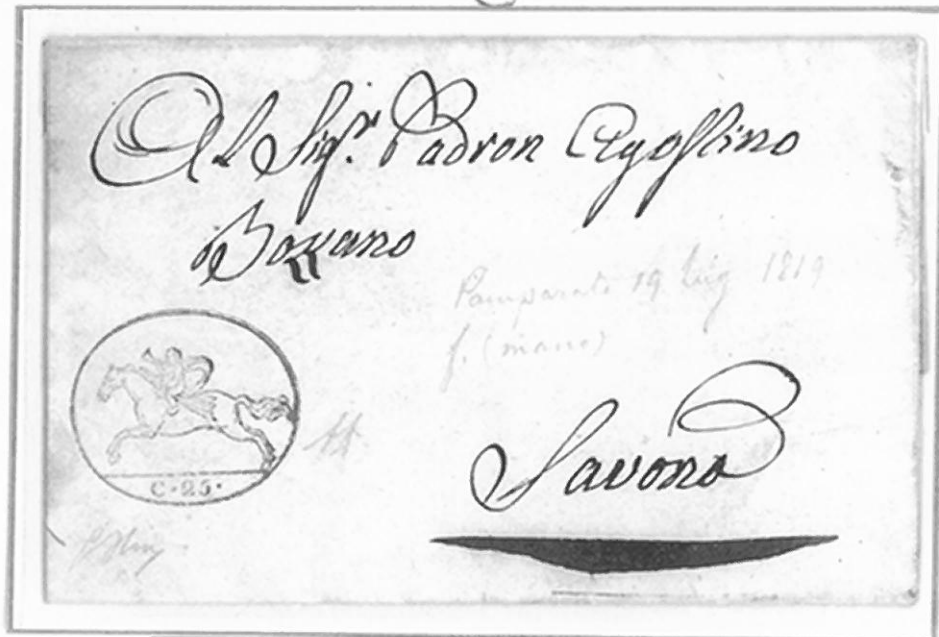 Al Sig.r Padron Agostino
Bozzano
Pamparato 19 Lug 1819
f. (mano)
C·25·
Savona